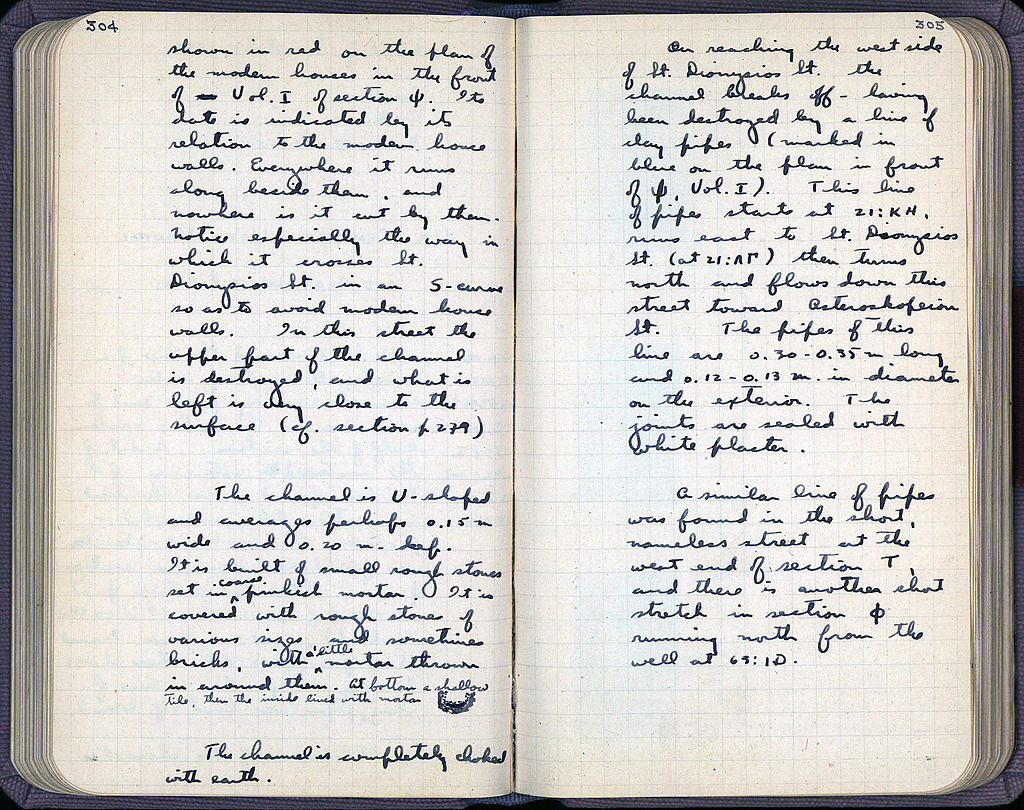 304
shown in red on the plan of
the modern houses in the front
of Vol. I of section ψ. Its
date is indicated by its
relation to the modern house
walls. Everywhere it runs
along beside them, and
nowhere is it cut by them.
Notice especially the way in
which it crosses St.
Dionysios St. in an S-curve
so as to avoid modern house
walls. In this street the
upper part of the channel
is destroyed, and what is
left is very close to the
surface (cf. section p 279)
The channel is U-shaped
and averages perhaps 0.15 m
wide and 0.20 m. deep.
It is built of small rough stones
set in coarse pinkish mortar. It is
covered with rough stones of
various sizes and sometimes
bricks, with a little mortar thrown
in around them. At bottom a shallow
tile, then the inside lined with mortar
The channel is completely choked
with earth.
305
On reaching the west side
of St. Dionysios St. the
channel breaks off - having
been destroyed by a line of
clay pipes (marked in
blue on the plan in front
of ψ, Vol. I). This line
of pipes starts at 21:ΚΗ,
runs east to St. Dionysios
St. (at 21:ΛΓ) then turns
north and flows down this
street toward Asteroskopeion
St. The pipes of this
line are 0.30-0.35 m long
and 0.12-0.13 m. in diameter
on the exterior. The
joints are sealed with
white plaster.
A similar line of pipes
was found in the short,
nameless street at the
west end of section T,
and there is another short
stretch in section Φ
running north from the
well at 63:ΙΔ.